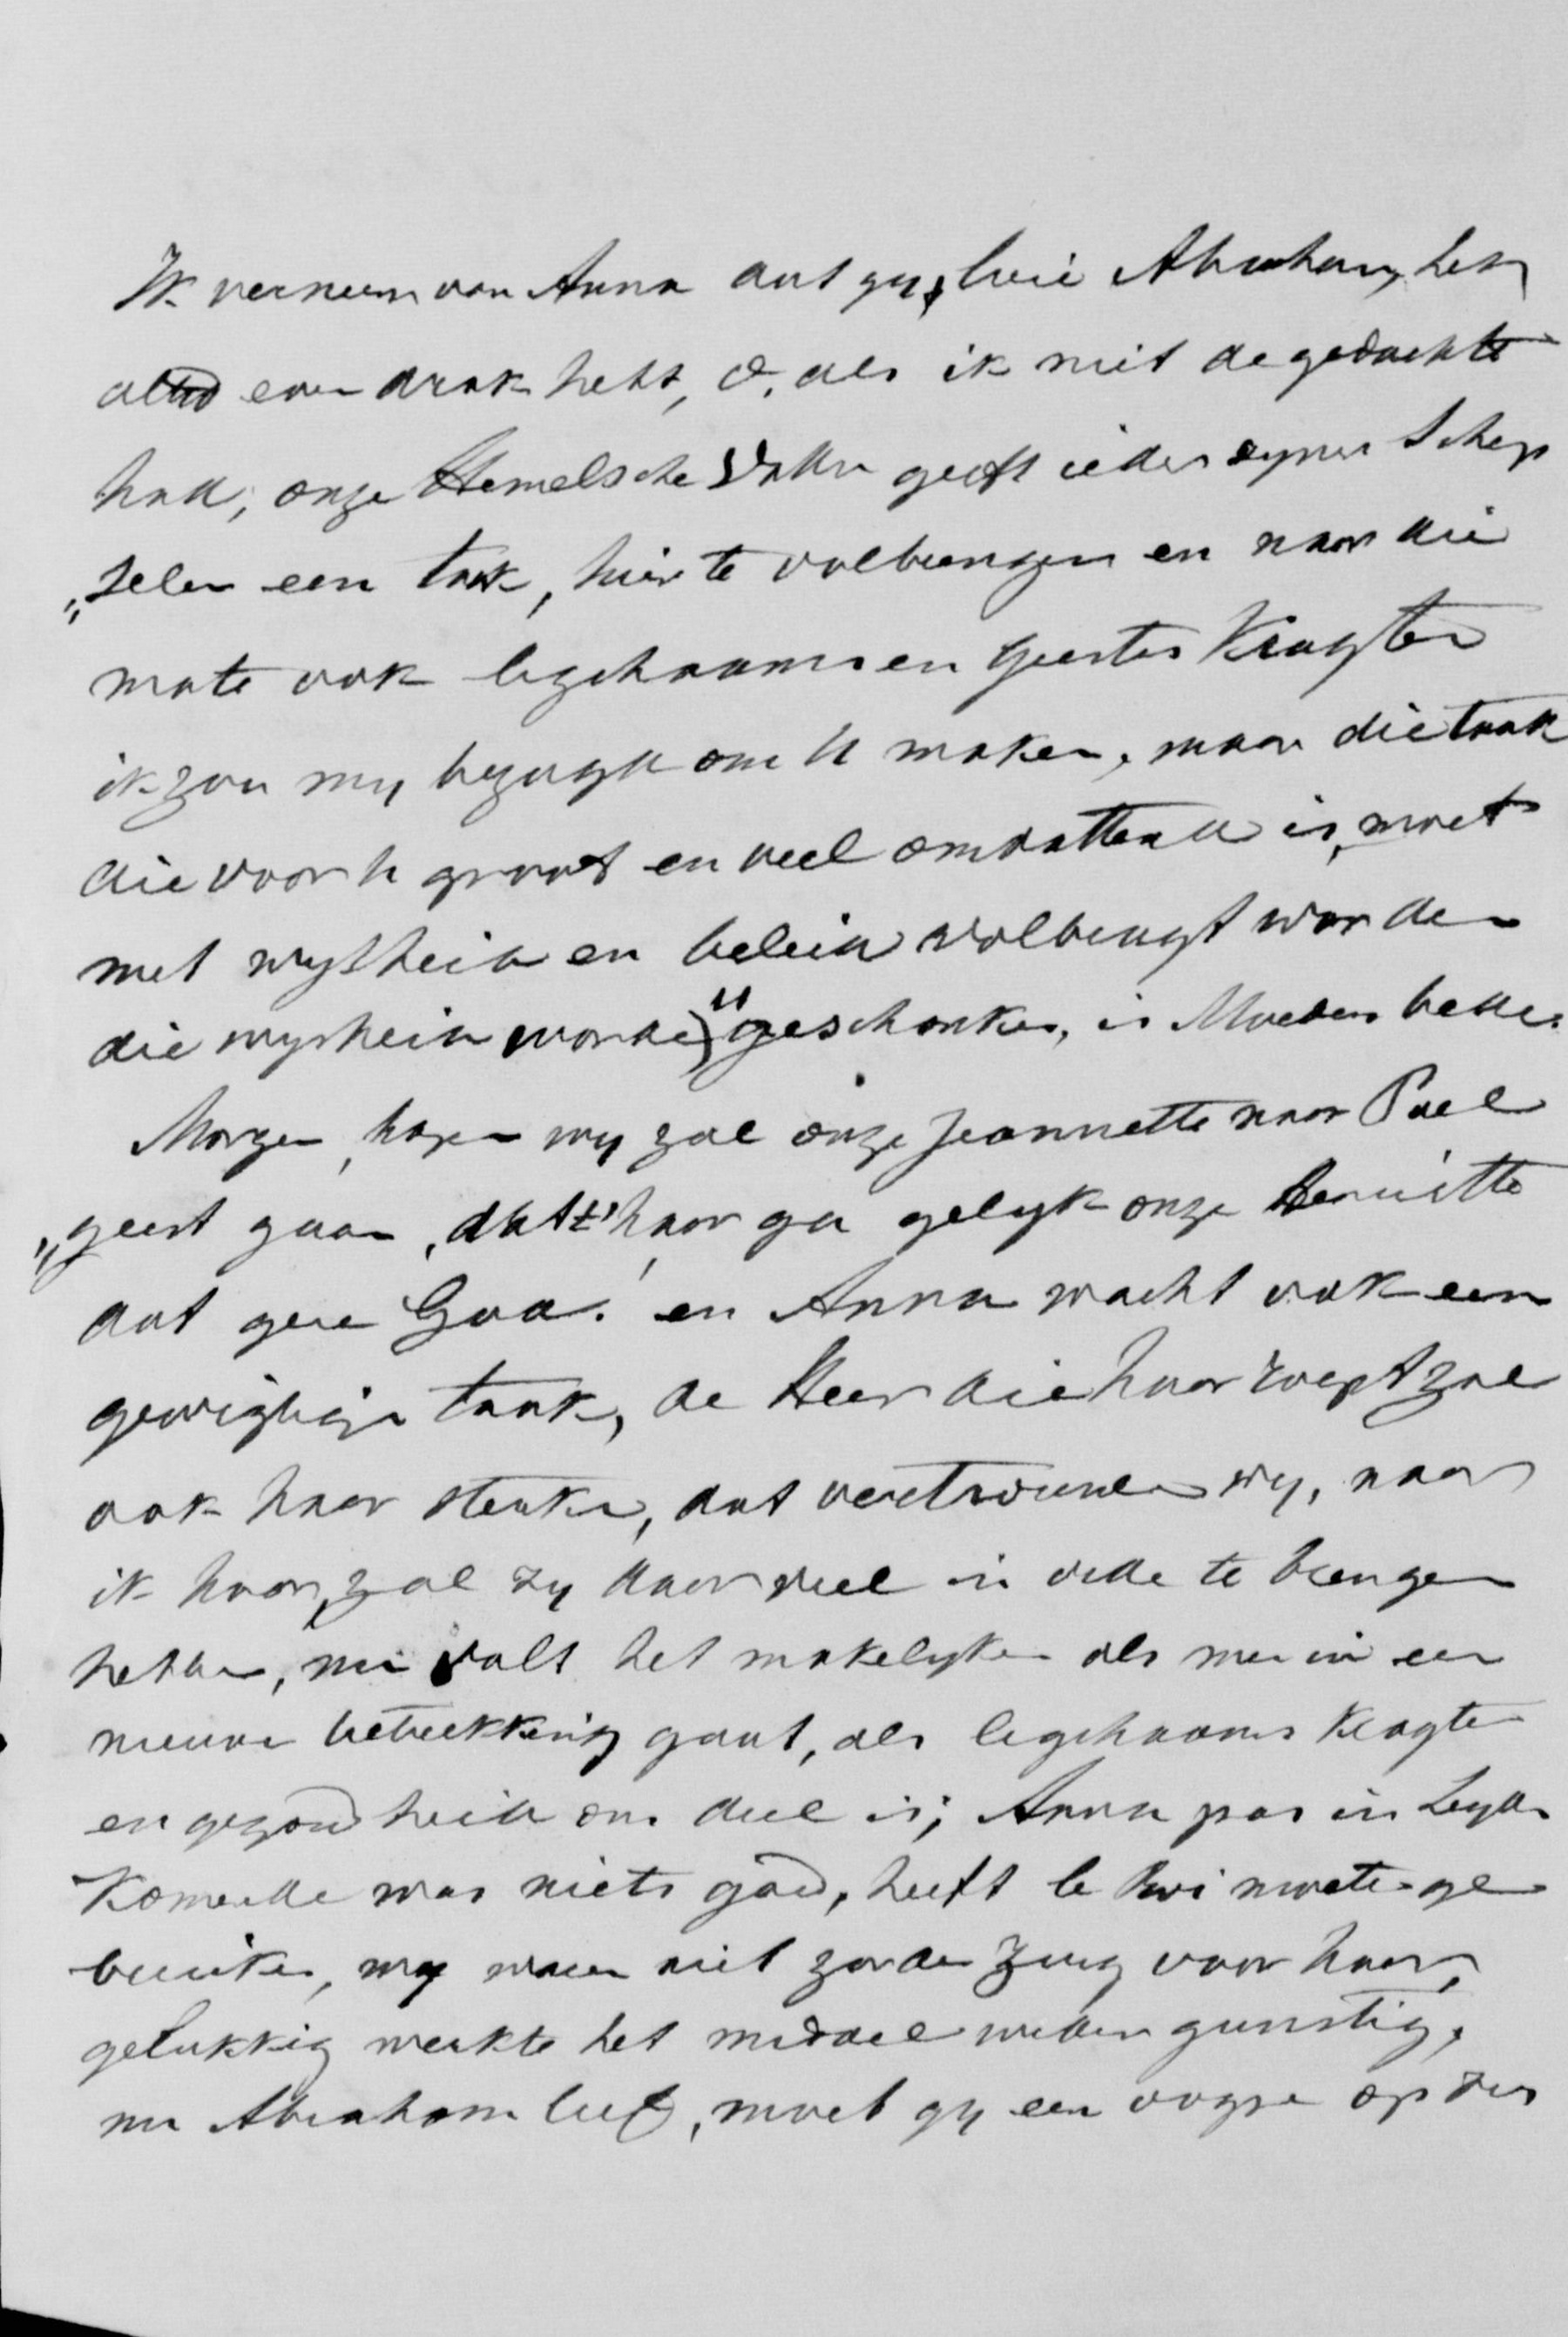 Ik verneem van Anna dat gy, lieve Abraham, het
altijd even druk hebt, o, als ik niet de gedachte
had, onze Hemelsche Vader geeft ieder zyner Schep
„selen een taak, hier te volbrengen en naar die
mate ook ligchaams en Geestes Kragten
ik zou my bezorgd om U maken, maar die taak
die voor U groot en veel omvattend is, moet
met wysheid en beleid volbragt worden
die wysheid worde U geschonken, is Moeders bede.
Morgen, hopen wy zal onze Jeannette naar Poel
„geest gaan, dat 't haar ga gelyk onze Henriette
dat geve God! en Anna wacht ook een
gewigtige taak, de Heer die haar roept zal
ook haar sterken, dat vertrouwen wy, naar
ik hoor, zal zy daar veel in orde te brengen
hebben, nu valt het makelyker als men in een
nieuwe betrekking gaat, als ligchaams kragten
en gezondheid ons deel is; Anna pas in Leyden
komende was niets goed, heeft le Roi moeten ge
bruiken, wy waren niet zonder zorg voor haar,
gelukkig werkte het middel weder gunstig,
nu Abraham lief, moet gy een oogje op den